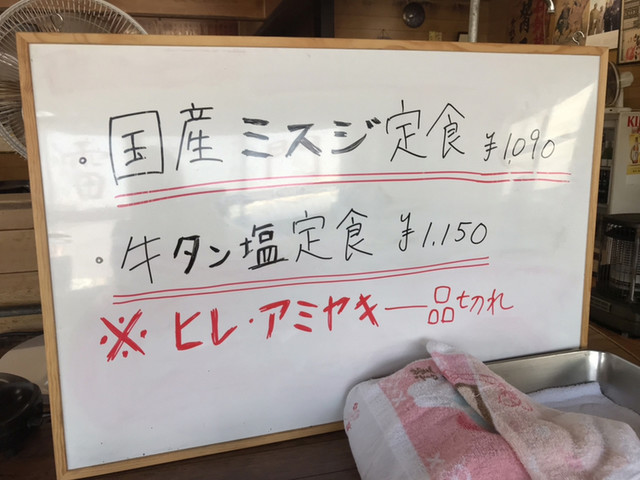 。国産ミスジ定食 ¥1,090
。牛タン塩定食 ¥1,150
※ ヒレ・アミヤキ―品切れ
KI